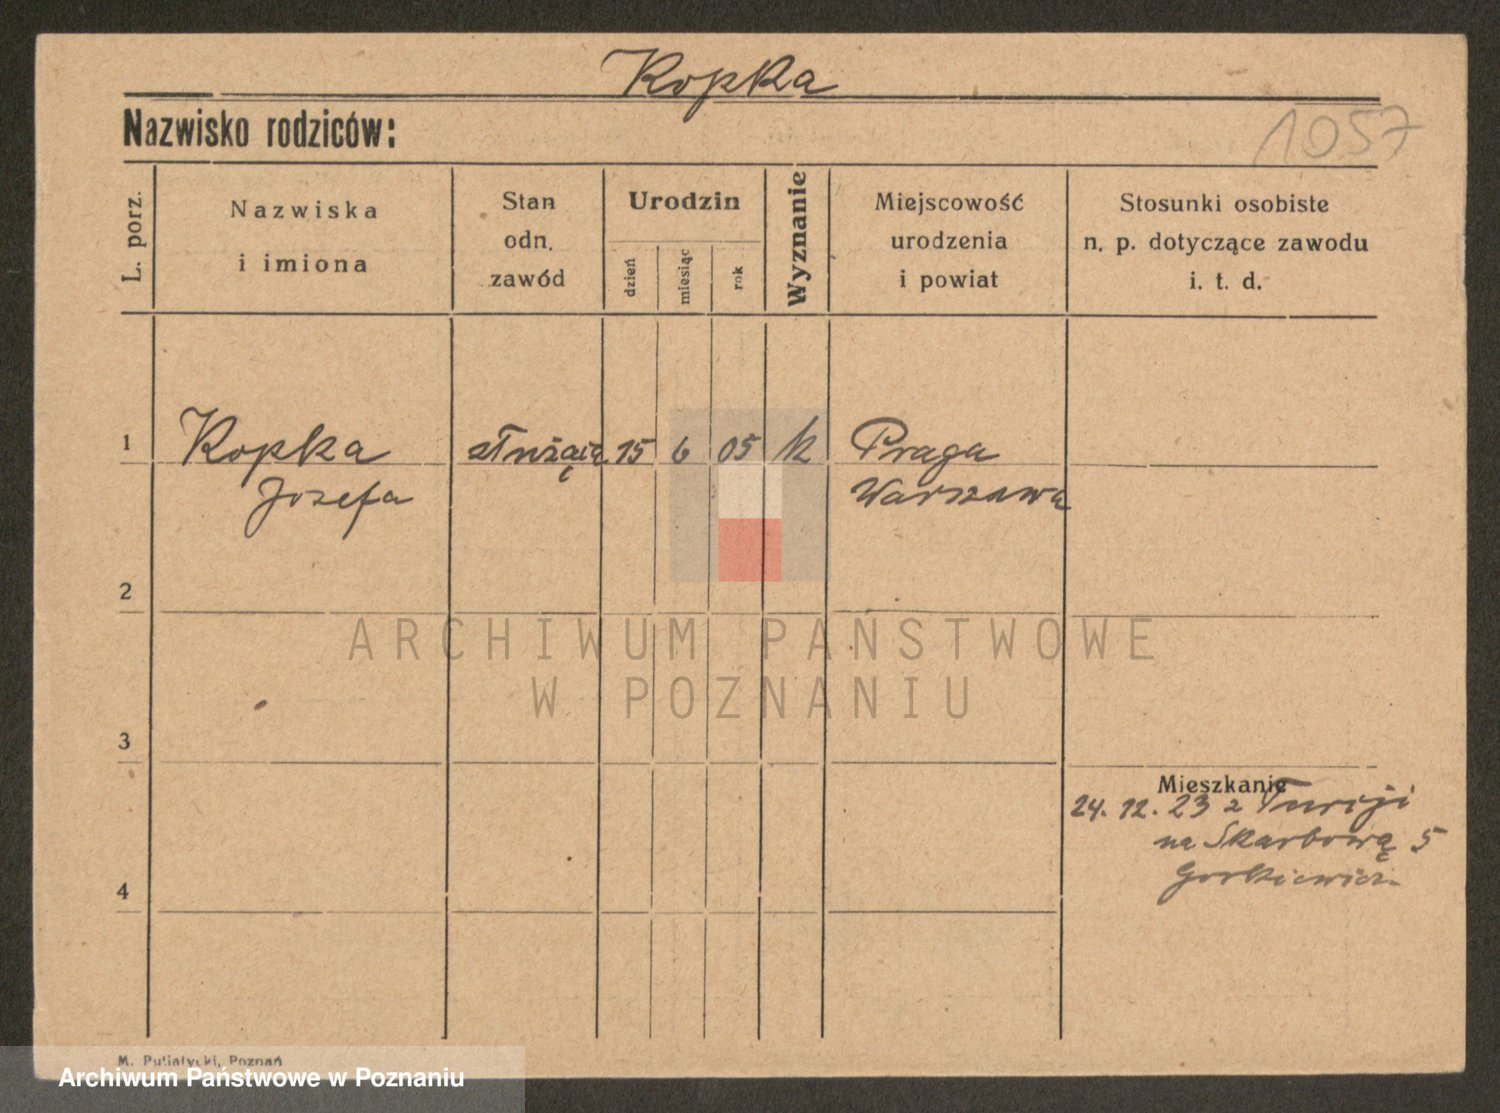 Kopka
Nazwisko rodziców:
1057
L. porz.
Nazwiska
i imiona
Stan
odn.
zawód
Urodzin
dzień
miesiąc
rok
Wyznanie
Miejscowość
urodzenia
i powiat
Stosunki osobiste
n. p. dotyczące zawodu
i. t. d.
1
Kopka
Józefa
służąca
15
6
05
k
Praga
Warszawa
2
ARCHIWUM PAŃSTWOWE
W POZNANIU
3
Mieszkanie
24. 12. 23 z
na Skarbową 5
4
M. Putiatycki, Poznań
Archiwum Państwowe w Poznaniu